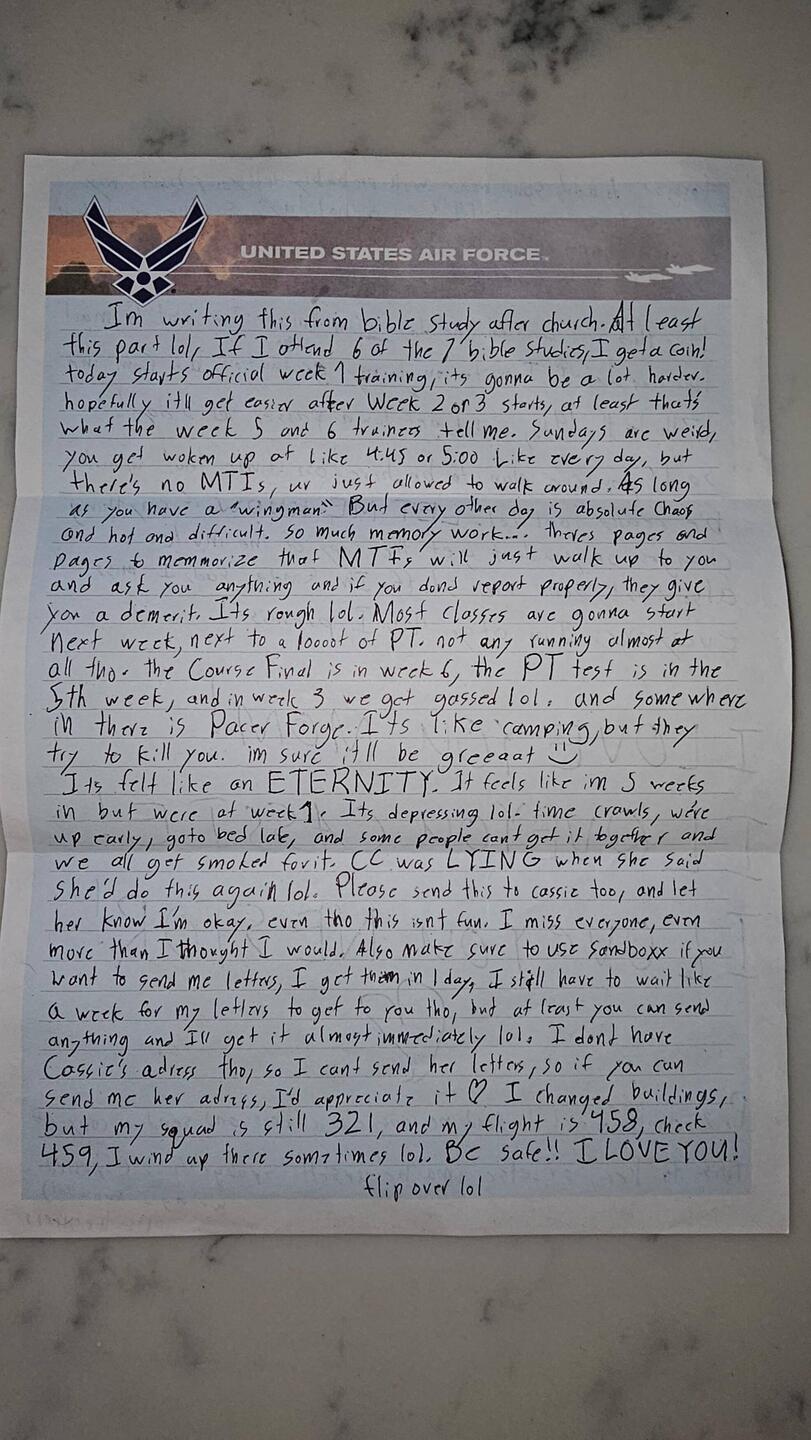 UNITED STATES AIR FORCE
Im writing this from bible study after church. At least
this part lol, If I attend 6 of the 7 bible studies, I get a coin!
today starts official week 1 training, its gonna be a lot harder.
hopefully itll get easier after Week 2 or 3 starts, at least that's
what the week 5 and 6 trainees tell me. Sundays are weird,
you get woken up at like 4:45 or 5:00 Like every day, but
there's no MTIs, ur just allowed to walk around. As long
as you have a "wingman." But every other day is absolute Chaos
and hot and difficult. So much memory work... theres pages and
pages to memmorize that MTIs will just walk up to you
and ask you anything and if you dond report properly, they give
you a demerit. Its rough lol. Most classes are gonna start
next week, next to a loooot of PT. not any running almost at
all tho. the Course Final is in week 6, the PT test is in the
5th week, and in week 3 we get gassed lol. and somewhere
in there is Pacer Forge. Its like camping, but they
try to kill you. im sure it'll be greeaat
Its felt like an ETERNITY. It feels like im 5 weeks
in but were at week 1. Its depressing lol. time crawls, we're
up early, goto bed late, and some people cant get it together and
we all get smoked for it. CC was LYING when she said
she'd do this again lol. Please send this to cassie too, and let
her know I'm okay, even tho this isnt fun. I miss everyone, even
more than I thought I would. Also make sure to use Sandboxx if you
want to send me letters, I get them in 1 day, I still have to wait like
a week for my letters to get to you tho, but at least you can send
anything and I'll get it almost immediately lol. I dont have
Cassie's adress tho, so I cant send her letters, so if you can
send me her adress, I'd appreciate it ♡ I changed buildings,
but my squad is still 321, and my flight is 458, check
459, I wind up there sometimes lol. Be safe!! I LOVE YOU!
flip over lol